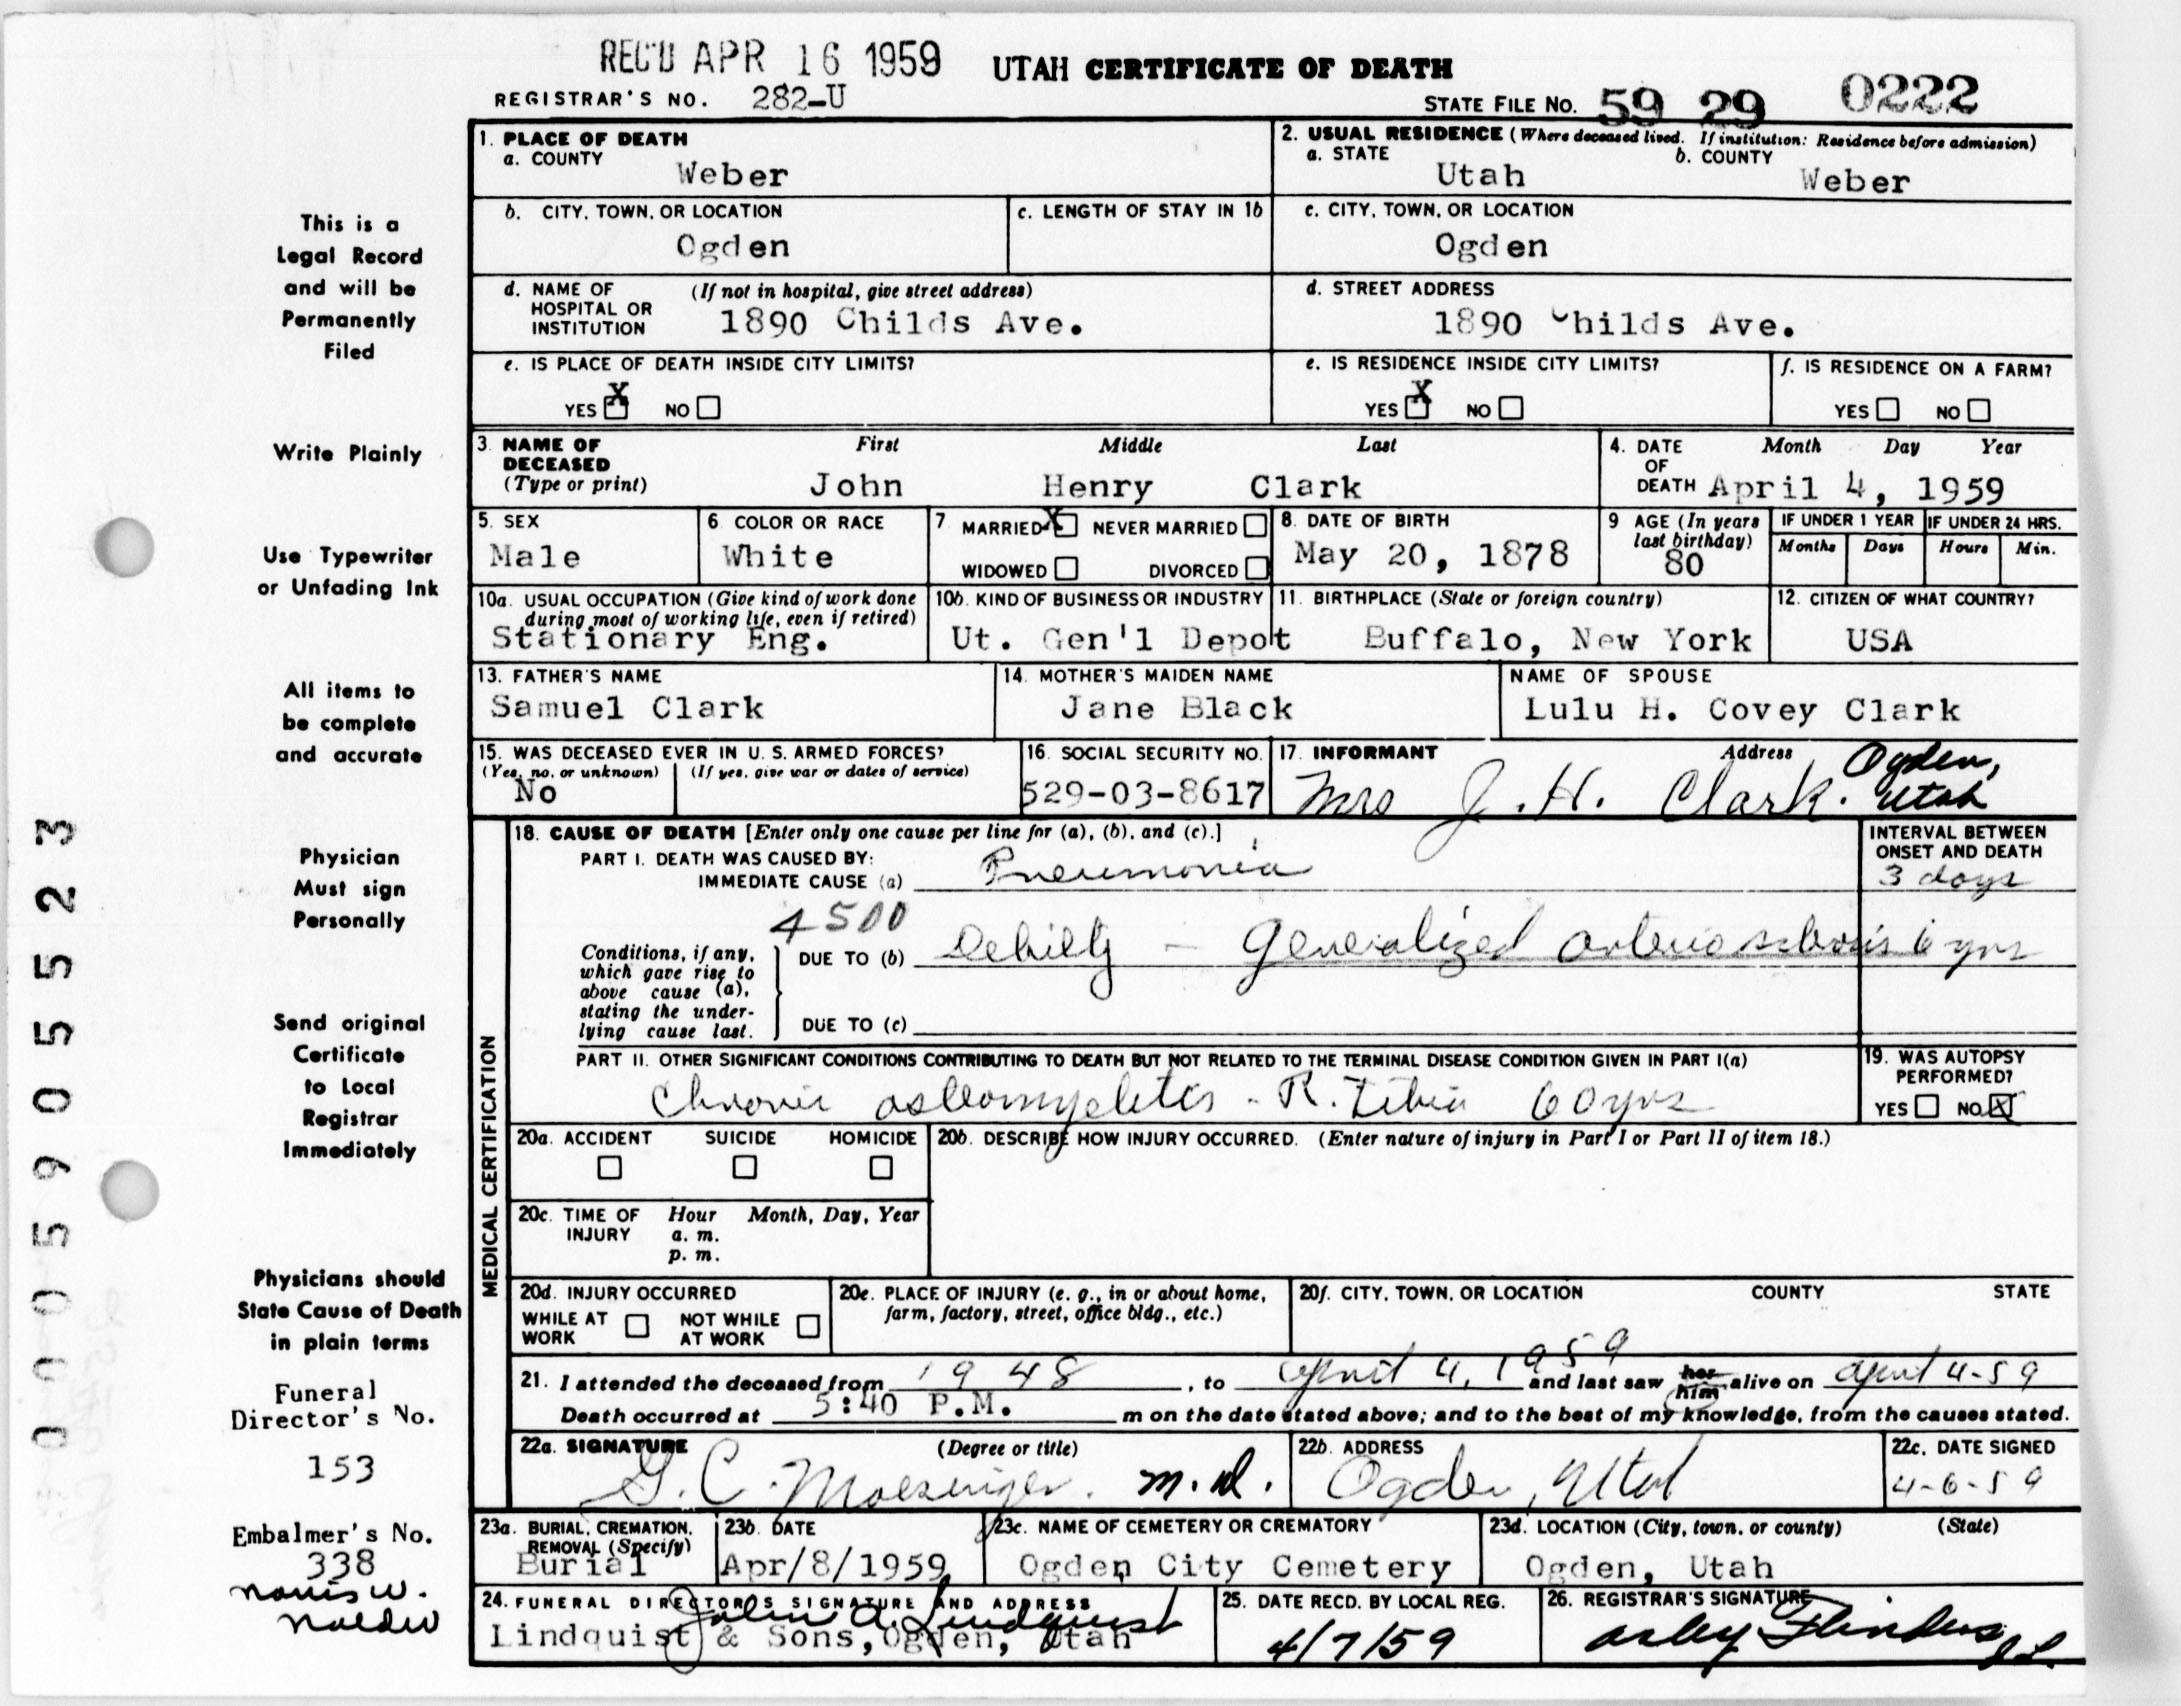 REC'D APR 16 1959 UTAH CERTIFICATE OF DEATH
REGISTRAR'S NO. 282-U STATE FILE NO. 59 29 0222
This is a
Legal Record
and will be
Permanently
Filed
Write Plainly
Use Typewriter
or Unfading Ink
All items to
be complete
and accurate
Physician
Must sign
Personally
Send original
Certificate
to Local
Registrar
Immediately
Physicians should
State Cause of Death
in plain terms
Funeral
Director's No.
153
Embalmer's No.
338
Norris W.
Nalder
00059055523
1. PLACE OF DEATH
a. COUNTY
Weber
2. USUAL RESIDENCE (Where deceased lived. If institution: Residence before admission)
a. STATE b. COUNTY
Utah Weber
b. CITY, TOWN, OR LOCATION
Ogden
c. LENGTH OF STAY IN 1b
c. CITY, TOWN, OR LOCATION
Ogden
d. NAME OF (If not in hospital, give street address)
HOSPITAL OR
INSTITUTION 1890 Childs Ave.
d. STREET ADDRESS
1890 Childs Ave.
e. IS PLACE OF DEATH INSIDE CITY LIMITS?
YES X NO
e. IS RESIDENCE INSIDE CITY LIMITS?
YES X NO
f. IS RESIDENCE ON A FARM?
YES NO
3. NAME OF First Middle Last
DECEASED
(Type or print) John Henry Clark
4. DATE Month Day Year
OF
DEATH April 4, 1959
5. SEX
Male
6. COLOR OR RACE
White
7. MARRIED X NEVER MARRIED
WIDOWED DIVORCED
8. DATE OF BIRTH
May 20, 1878
9 AGE (In years
last birthday)
80
IF UNDER 1 YEAR IF UNDER 24 HRS.
Months Days Hours Min.
10a. USUAL OCCUPATION (Give kind of work done
during most of working life, even if retired)
Stationary Eng.
10b. KIND OF BUSINESS OR INDUSTRY
Ut. Gen'l Depot
11. BIRTHPLACE (State or foreign country)
Buffalo, New York
12. CITIZEN OF WHAT COUNTRY?
USA
13. FATHER'S NAME
Samuel Clark
14. MOTHER'S MAIDEN NAME
Jane Black
NAME OF SPOUSE
Lulu H. Covey Clark
15. WAS DECEASED EVER IN U. S. ARMED FORCES?
(Yes, no, or unknown) (If yes, give war or dates of service)
No
16. SOCIAL SECURITY NO.
529-03-8617
17. INFORMANT Address
Mrs J. H. Clark. Ogden,
Utah
MEDICAL CERTIFICATION
18. CAUSE OF DEATH [Enter only one cause per line for (a), (b), and (c).]
PART I. DEATH WAS CAUSED BY:
IMMEDIATE CAUSE (a) Pneumonia
INTERVAL BETWEEN
ONSET AND DEATH
3 days
4500
Conditions, if any,
which gave rise to
above cause (a),
stating the under-
lying cause last.
DUE TO (b) Debility - Generalized arteriosclerosis 6 yrs
DUE TO (c)
PART II. OTHER SIGNIFICANT CONDITIONS CONTRIBUTING TO DEATH BUT NOT RELATED TO THE TERMINAL DISEASE CONDITION GIVEN IN PART I(a)
Chronic osteomyeletis - R. Tibia 60 yrs
19. WAS AUTOPSY
PERFORMED?
YES NO X
20a. ACCIDENT SUICIDE HOMICIDE
20b. DESCRIBE HOW INJURY OCCURRED. (Enter nature of injury in Part I or Part II of item 18.)
20c. TIME OF Hour Month, Day, Year
INJURY a. m.
p. m.
20d. INJURY OCCURRED
WHILE AT NOT WHILE
WORK AT WORK
20e. PLACE OF INJURY (e. g., in or about home,
farm, factory, street, office bldg., etc.)
20f. CITY, TOWN, OR LOCATION COUNTY STATE
21. I attended the deceased from 1948, to April 4, 1959 and last saw her him alive on April 4-59
Death occurred at 5:40 P.M. m on the date stated above; and to the best of my knowledge, from the causes stated.
22a. SIGNATURE (Degree or title)
G. C. Moesinger. M.D.
22b. ADDRESS
Ogden, Utah
22c. DATE SIGNED
4-6-59
23a. BURIAL, CREMATION,
REMOVAL (Specify)
Burial
23b. DATE
Apr/8/1959
23c. NAME OF CEMETERY OR CREMATORY
Ogden City Cemetery
23d. LOCATION (City, town, or county) (State)
Ogden, Utah
24. FUNERAL DIRECTOR'S SIGNATURE AND ADDRESS
John A. Lindquist
Lindquist & Sons, Ogden, Utah
25. DATE RECD. BY LOCAL REG.
4/7/59
26. REGISTRAR'S SIGNATURE
Flinders